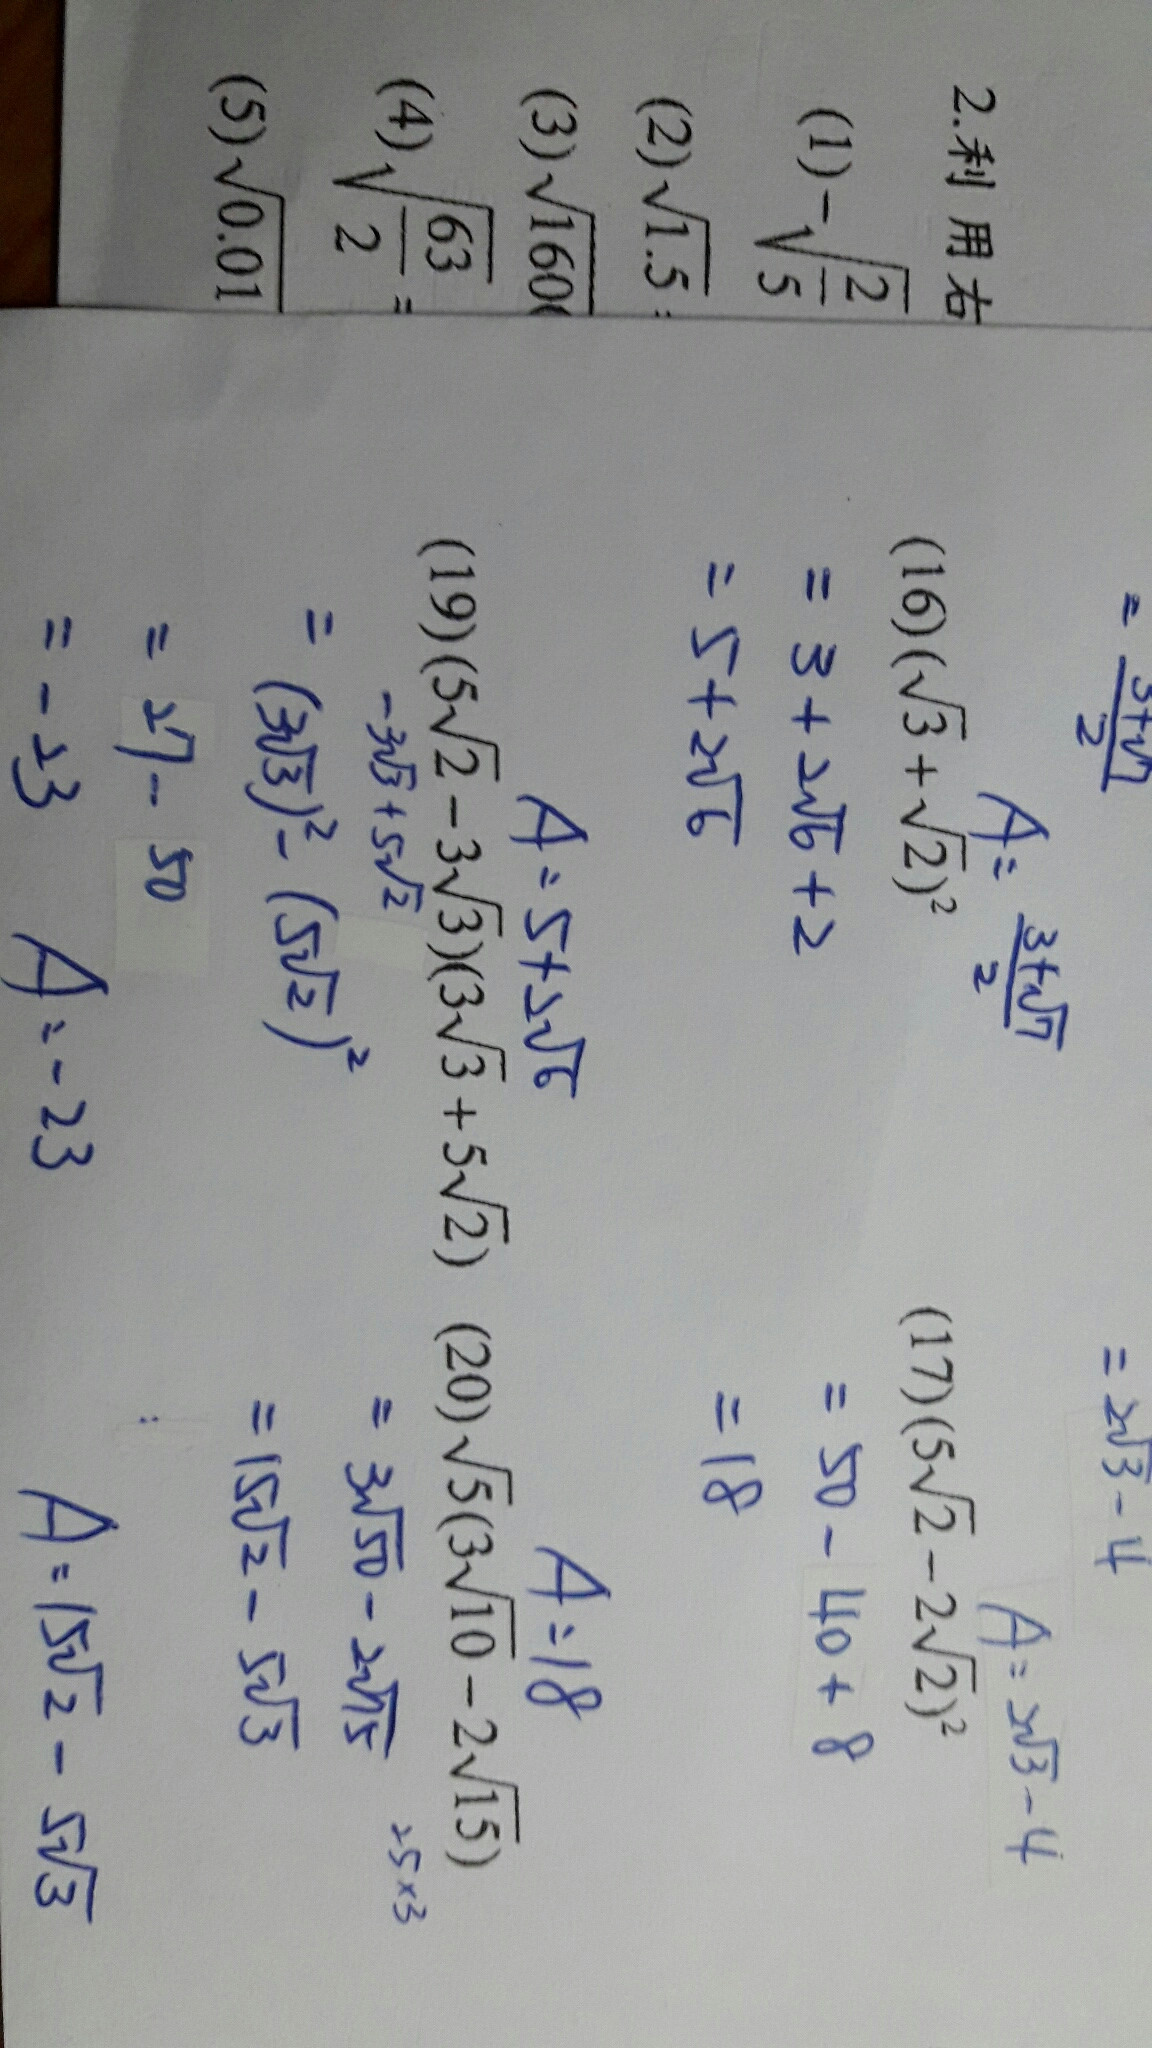 2.利用右
(1) -√(2/5)
(2) √1.5
(3) √160
(4) √(63/2) =
(5) √0.01
= (3+√7)/2
A = (3+√7)/2
= 2√3 - 4
A = 2√3 - 4
(16) (√3 + √2)²
= 3 + 2√6 + 2
= 5 + 2√6
A = 5 + 2√6
(17) (5√2 - 2√2)²
= 50 - 40 + 8
= 18
A = 18
(19) (5√2 - 3√3)(3√3 + 5√2)
-3√3 + 5√2
= (3√3)² - (5√2)²
= 27 - 50
= -23
A = -23
(20) √5(3√10 - 2√15)
= 3√50 - 2√75
25×3
= 15√2 - 5√3
A = 15√2 - 5√3